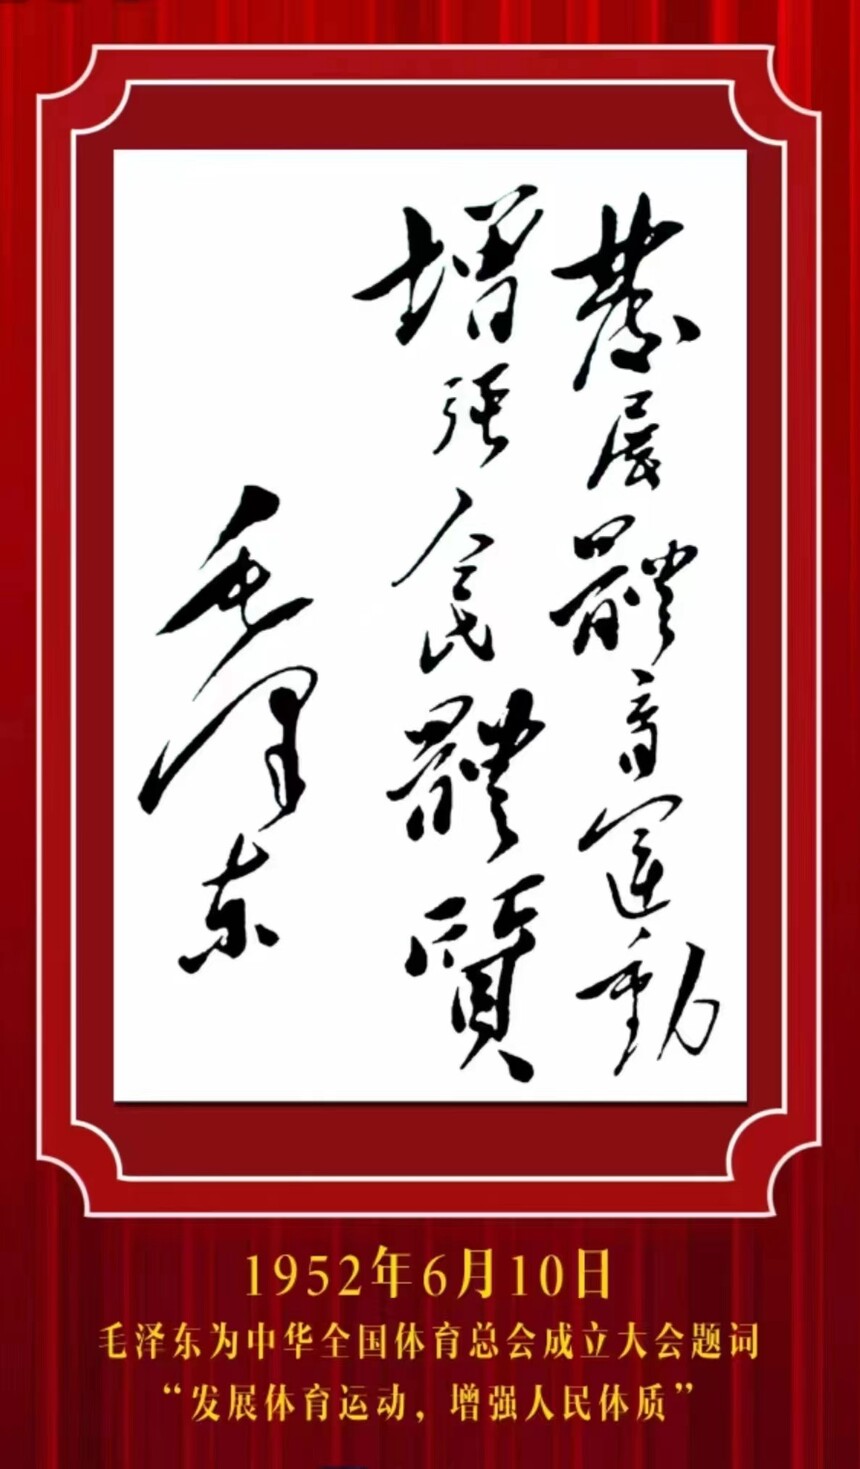 發展體育運動
增强人民體質
毛澤东
1952年6月10日
毛泽东为中华全国体育总会成立大会题词
“发展体育运动，增强人民体质”